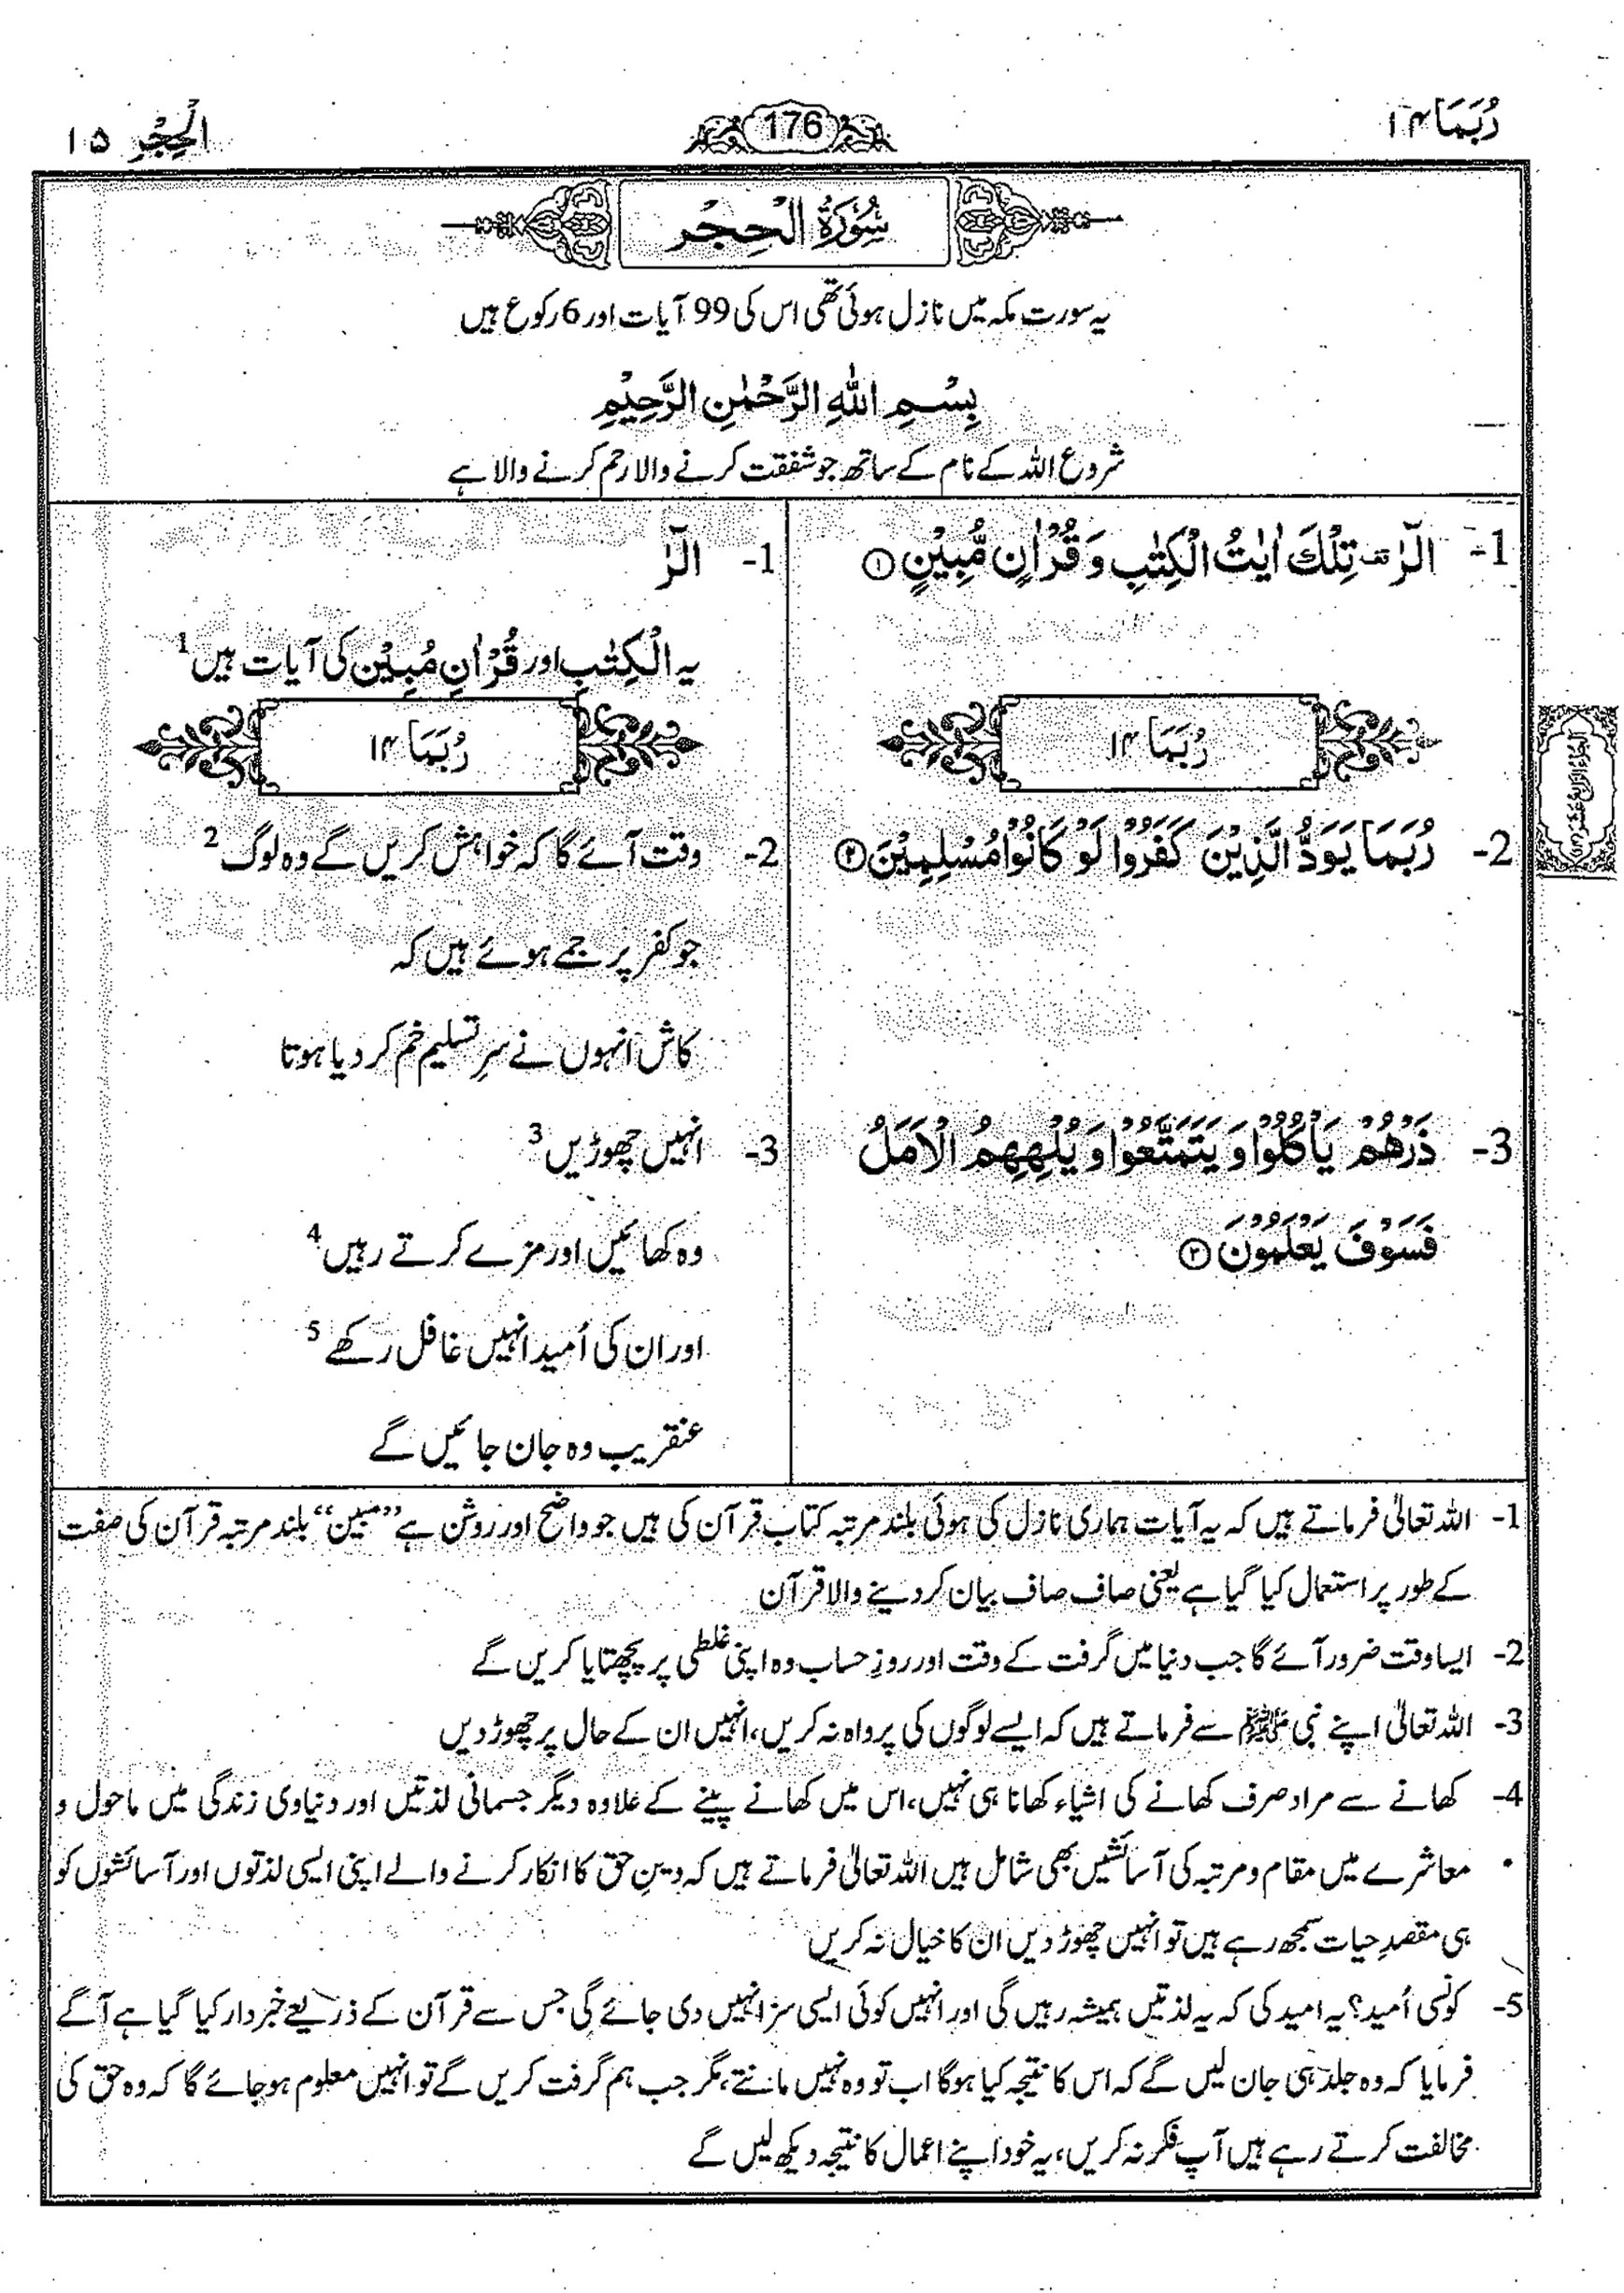 رُبَمَا ۱۴
176
الْحِجْر ۱۵
سُوْرَةُ الْحِجْر
یہ سورت مکہ میں نازل ہوئی تھی اس کی 99 آیات اور 6 رکوع ہیں
بِسْمِ اللهِ الرَّحْمٰنِ الرَّحِيْمِ
شروع اللہ کے نام کے ساتھ جو شفقت کرنے والا رحم کرنے والا ہے
1- الٓرٰ ۟ تِلْكَ اٰيٰتُ الْكِتٰبِ وَ قُرْاٰنٍ مُّبِيْنٍ ۝۱
رُبَمَا ۱۴
2- رُبَمَا يَوَدُّ الَّذِيْنَ كَفَرُوْا لَوْ كَانُوْا مُسْلِمِيْنَ ۝۲
3- ذَرْهُمْ يَاْكُلُوْا وَ يَتَمَتَّعُوْا وَ يُلْهِهِمُ الْاَمَلُ
فَسَوْفَ يَعْلَمُوْنَ ۝۳
1- الٓرٰ
یہ الْكِتٰبِ اور قُرْاٰنٍ مُبِيْن کی آیات ہیں 1
رُبَمَا ۱۴
2- وقت آئے گا کہ خواہش کریں گے وہ لوگ 2
جو کفر پر جمے ہوئے ہیں کہ
کاش انہوں نے سرِ تسلیم خم کر دیا ہوتا
3- انہیں چھوڑیں 3
وہ کھائیں اور مزے کرتے رہیں 4
اور ان کی اُمید انہیں غافل رکھے 5
عنقریب وہ جان جائیں گے
الجزء الرابع عشر
1- اللہ تعالیٰ فرماتے ہیں کہ یہ آیات ہماری نازل کی ہوئی بلند مرتبہ کتاب قرآن کی ہیں جو واضح اور روشن ہے ”مبین“ بلند مرتبہ قرآن کی صفت
کے طور پر استعمال کیا گیا ہے یعنی صاف صاف بیان کر دینے والا قرآن
2- ایسا وقت ضرور آئے گا جب دنیا میں گرفت کے وقت اور روزِ حساب وہ اپنی غلطی پر پچھتایا کریں گے
3- اللہ تعالیٰ اپنے نبی ﷺ سے فرماتے ہیں کہ ایسے لوگوں کی پرواہ نہ کریں، انہیں ان کے حال پر چھوڑ دیں
4- کھانے سے مراد صرف کھانے کی اشیاء کھانا ہی نہیں، اس میں کھانے پینے کے علاوہ دیگر جسمانی لذتیں اور دنیاوی زندگی میں ماحول و
معاشرے میں مقام و مرتبہ کی آسائشیں بھی شامل ہیں اللہ تعالیٰ فرماتے ہیں کہ دینِ حق کا انکار کرنے والے اپنی ایسی لذتوں اور آسائشوں کو
ہی مقصدِ حیات سمجھ رہے ہیں تو انہیں چھوڑ دیں ان کا خیال نہ کریں
5- کونسی اُمید؟ یہ امید کی کہ یہ لذتیں ہمیشہ رہیں گی اور انہیں کوئی ایسی سزا نہیں دی جائے گی جس سے قرآن کے ذریعے خبردار کیا گیا ہے آگے
فرمایا کہ وہ جلد ہی جان لیں گے کہ اس کا نتیجہ کیا ہوگا اب تو وہ نہیں مانتے، مگر جب ہم گرفت کریں گے تو انہیں معلوم ہو جائے گا کہ وہ حق کی
مخالفت کرتے رہے ہیں آپ فکر نہ کریں، یہ خود اپنے اعمال کا نتیجہ دیکھ لیں گے